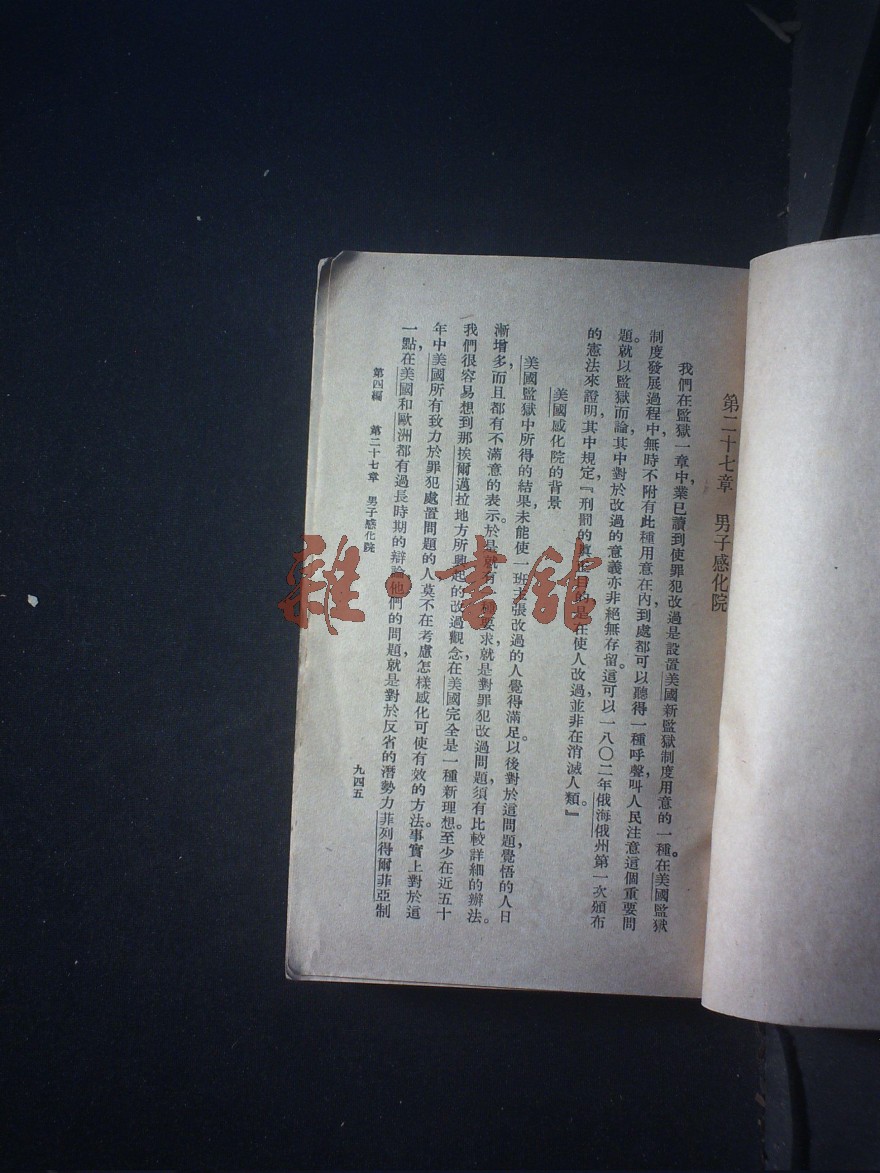 第二十七章　男子感化院
我們在監獄一章中，業已讀到使罪犯改過是設置美國新監獄制度用意的一種。在美國監獄
制度發展過程中，無時不附有此種用意在內，到處都可以聽得一種呼聲，叫人民注意這個重要問
題。就以監獄而論，其中對於改過的意義，亦非絕無存留。這可以一八〇二年俄海俄州第一次頒布
的憲法來證明，其中規定『刑罰的真正目的是在使人改過，並非在消滅人類。』
美國感化院的背景
美國監獄中所得的結果，未能使一班主張改過的人覺得滿足。以後對於這問題，覺悟的人日
漸增多，而且都有不滿意的表示。於是就有一種要求，就是對罪犯改過問題，須有比較詳細的辦法。
我們很容易想到那挨爾邁拉地方所興起的改過觀念，在美國完全是一種新理想。至少在近五十
年中，美國所有致力於罪犯處置問題的人，莫不在考慮怎樣感化可使有效的方法。事實上對於這
一點，在美國和歐洲都有過長時期的辯論，他們的問題就是對於反省的潛勢力。菲列得爾菲亞制
第四編　第二十七章　男子感化院
九四五
雜·書館